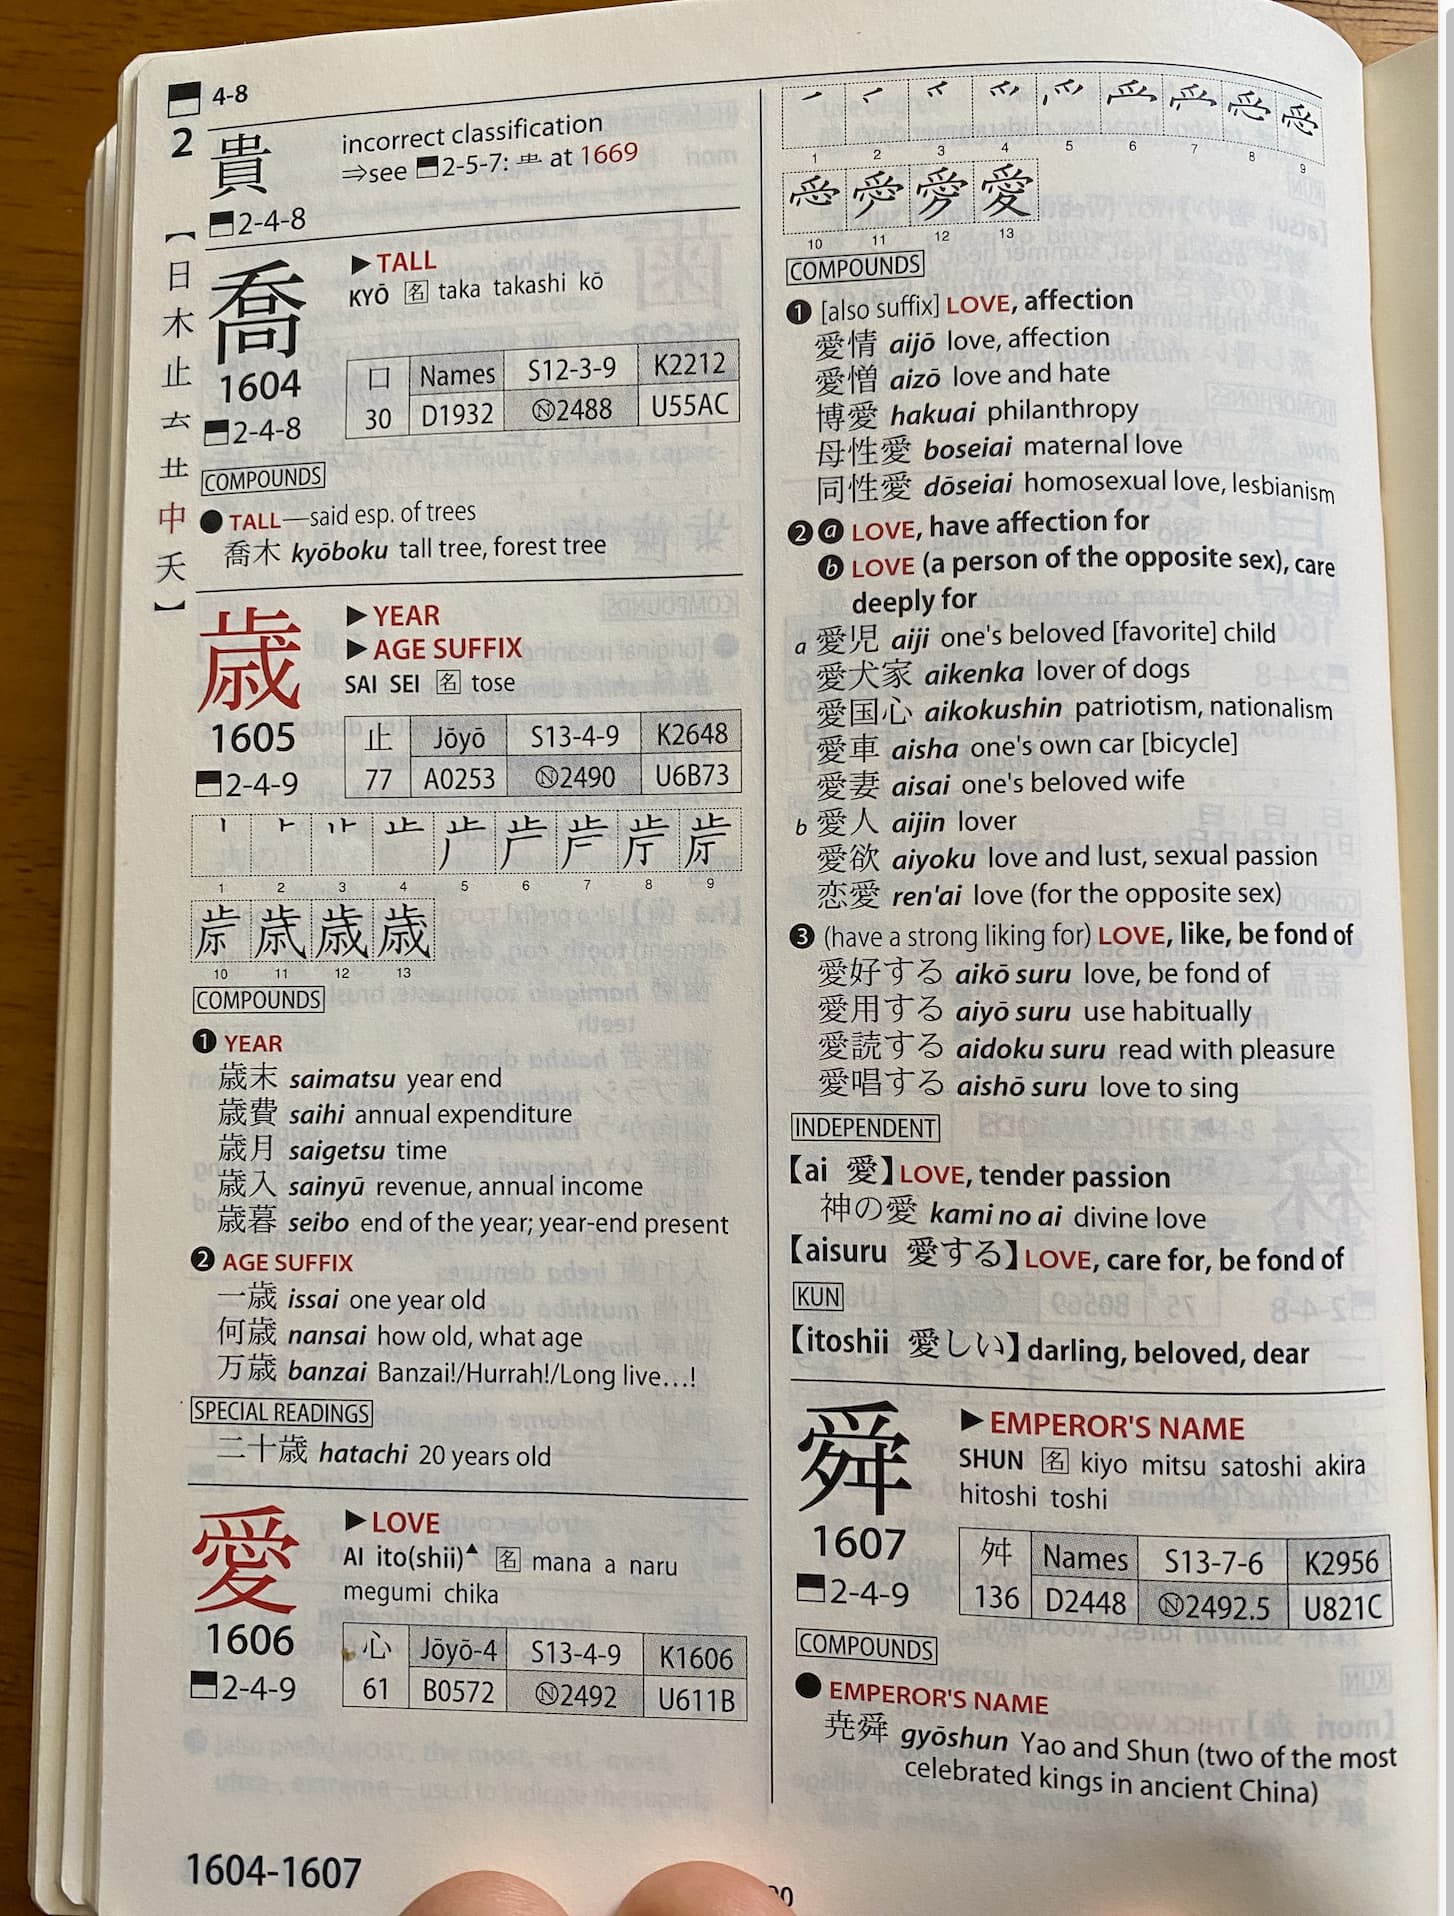 4-8
2
【日木止𠫓龷中夭】
貴
2-4-8
incorrect classification
⇒see 2-5-7: 𠀐 at 1669
喬
1604
2-4-8
▶TALL
KYŌ 名 taka takashi kō
口 Names S12-3-9 K2212
30 D1932 Ⓝ2488 U55AC
COMPOUNDS
● TALL—said esp. of trees
喬木 kyōboku tall tree, forest tree
歳
1605
2-4-9
▶YEAR
▶AGE SUFFIX
SAI SEI 名 tose
止 Jōyō S13-4-9 K2648
77 A0253 Ⓝ2490 U6B73
1 2 3 4 5 6 7 8 9
10 11 12 13
COMPOUNDS
❶ YEAR
歳末 saimatsu year end
歳費 saihi annual expenditure
歳月 saigetsu time
歳入 sainyū revenue, annual income
歳暮 seibo end of the year; year-end present
❷ AGE SUFFIX
一歳 issai one year old
何歳 nansai how old, what age
万歳 banzai Banzai!/Hurrah!/Long live…!
SPECIAL READINGS
二十歳 hatachi 20 years old
愛
1606
2-4-9
▶LOVE
AI ito(shii)▲ 名 mana a naru
megumi chika
心 Jōyō-4 S13-4-9 K1606
61 B0572 Ⓝ2492 U611B
1 2 3 4 5 6 7 8 9
10 11 12 13
COMPOUNDS
❶ [also suffix] LOVE, affection
愛情 aijō love, affection
愛憎 aizō love and hate
博愛 hakuai philanthropy
母性愛 boseiai maternal love
同性愛 dōseiai homosexual love, lesbianism
❷ⓐ LOVE, have affection for
ⓑ LOVE (a person of the opposite sex), care
deeply for
a 愛児 aiji one's beloved [favorite] child
愛犬家 aikenka lover of dogs
愛国心 aikokushin patriotism, nationalism
愛車 aisha one's own car [bicycle]
愛妻 aisai one's beloved wife
b 愛人 aijin lover
愛欲 aiyoku love and lust, sexual passion
恋愛 ren'ai love (for the opposite sex)
❸ (have a strong liking for) LOVE, like, be fond of
愛好する aikō suru love, be fond of
愛用する aiyō suru use habitually
愛読する aidoku suru read with pleasure
愛唱する aishō suru love to sing
INDEPENDENT
【ai 愛】LOVE, tender passion
神の愛 kami no ai divine love
【aisuru 愛する】LOVE, care for, be fond of
KUN
【itoshii 愛しい】darling, beloved, dear
舜
1607
2-4-9
▶EMPEROR'S NAME
SHUN 名 kiyo mitsu satoshi akira
hitoshi toshi
舛 Names S13-7-6 K2956
136 D2448 Ⓝ2492.5 U821C
COMPOUNDS
● EMPEROR'S NAME
尭舜 gyōshun Yao and Shun (two of the most
celebrated kings in ancient China)
1604-1607